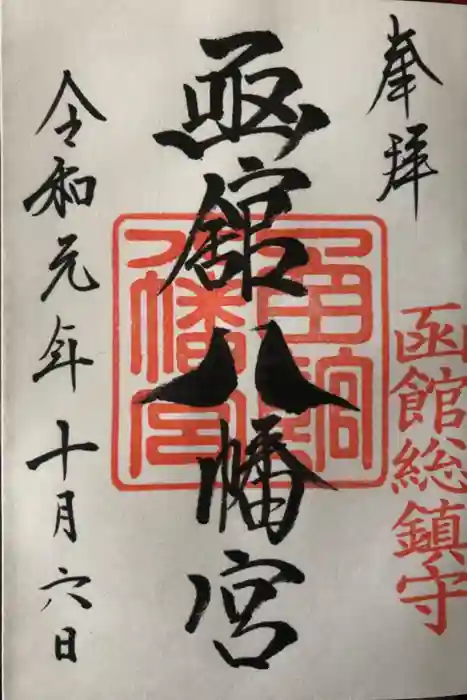 奉拝
函館総鎮守
函館八幡宮
令和元年十月六日